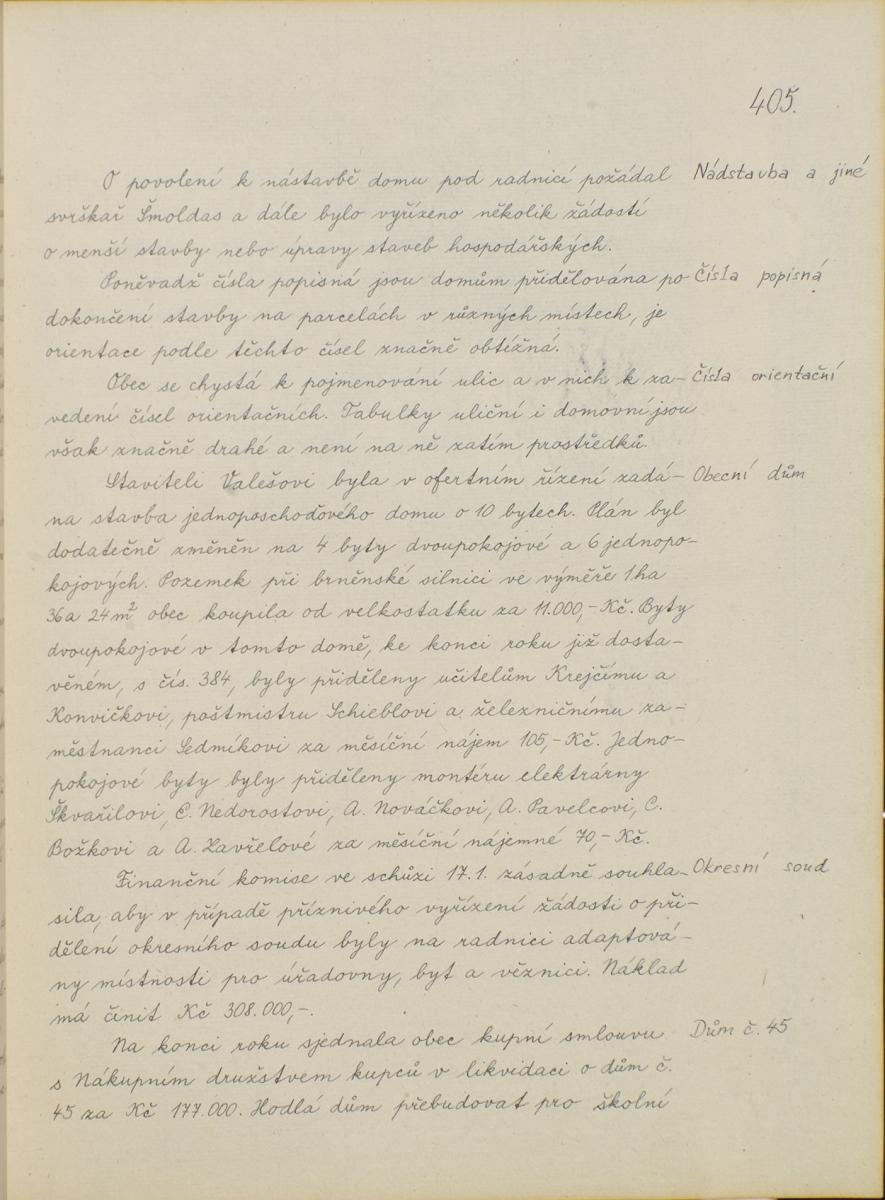 405.
O povolení k nástavbě domu pod radnicí požádal Nádstavba a jiné
svrškař Šmoldas a dále bylo vyřízeno několik žádostí
o menší stavby nebo úpravy staveb hospodářských.
Poněvadž čísla popisná jsou domům přidělována po Čísla popisná
dokončení stavby na parcelách v různých místech, je
orientace podle těchto čísel značně obtížná.
Obec se chystá k pojmenování ulic a v nich k za- Čísla orientační
vedení čísel orientačních. Tabulky uliční i domovní jsou
však značně drahé a není na ně zatím prostředků.
Staviteli Valešovi byla v ofertním řízení zadá- Obecní dům
na stavba jednoposchoďového domu o 10 bytech. Plán byl
dodatečně změněn na 4 byty dvoupokojové a 6 jednopo-
kojových. Pozemek při brněnské silnici ve výměře 1 ha
36a 24m² obec koupila od velkostatku za 11.000,- Kč. Byty
dvoupokojové v tomto domě, ke konci roku již dosta-
věném, s čís. 384, byly přiděleny učitelům Krejčímu a
Konvičkovi, poštmistru Schieblovi a železničnímu za-
městnanci Sedmíkovi za měsíční nájem 105,- Kč. Jedno-
pokojové byty byly přiděleny montéru elektrárny
Škvařilovi, C. Nedorostovi, A. Nováčkovi, A. Pavelcovi, C.
Božkovi a A. Zavřelové za měsíční nájemné 70,- Kč.
Finanční komise ve schůzi 17.1. zásadně souhla- Okresní soud
sila, aby v případě příznivého vyřízení žádosti o při-
dělení okresního soudu byly na radnici adaptová-
ny místnosti pro úřadovny, byt a věznici. Náklad
má činit Kč 308.000,-.
Na konci roku sjednala obec kupní smlouvu Dům č. 45
s Nákupním družstvem kupců v likvidaci o dům č.
45 za Kč 177.000. Hodlá dům přebudovat pro školní